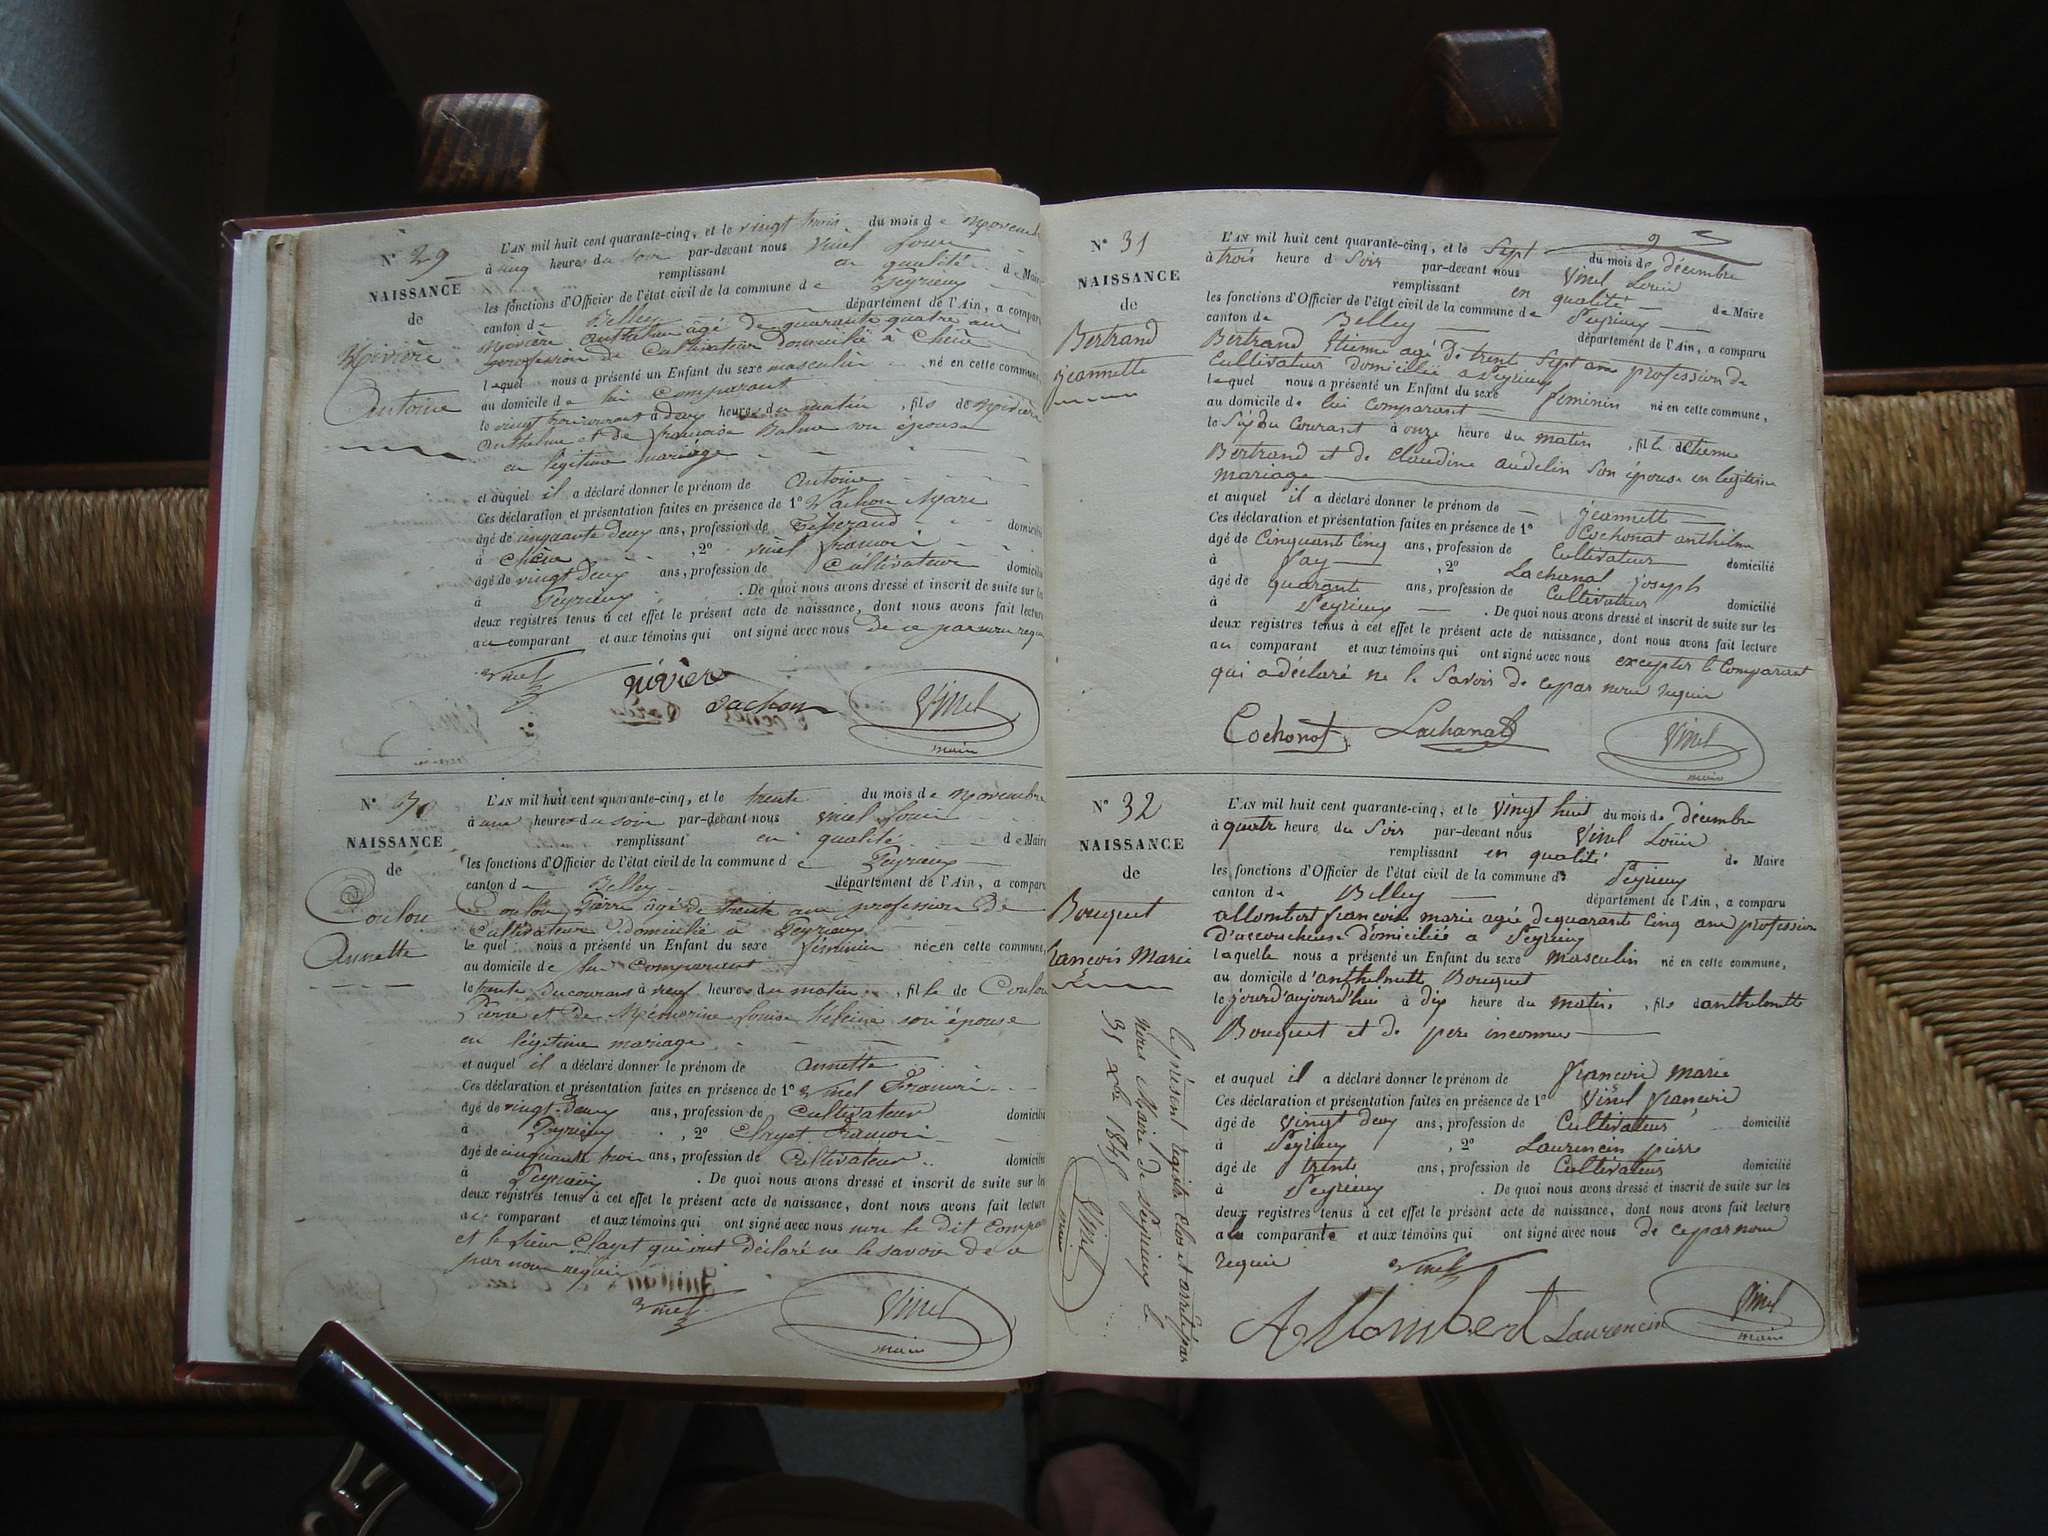 N° 29
NAISSANCE
de
Nivière
Antoine
L'AN mil huit cent quarante-cinq, et le vingt trois du mois de Novembre
à cinq heures du soir par-devant nous Vinel Louis
remplissant en qualité de Maire
les fonctions d'Officier de l'état civil de la commune de Peyrieux
canton de Belley département de l'Ain, a comparu
Nivière Anthelme âgé de quarante quatre ans
profession de Cultivateur domicilié à Chêne
lequel nous a présenté un Enfant du sexe masculin né en cette commune,
au domicile de lui comparant
le vingt trois courant à deux heures du matin, fils de Nivière
Anthelme et de françoise Balme son épouse
en légitime mariage
et auquel il a déclaré donner le prénom de Antoine
Ces déclaration et présentation faites en présence de 1° Vachon Marc
âgé de cinquante deux ans, profession de Tisserand domicilié
à Chêne , 2° Vinel françois
âgé de vingt deux ans, profession de Cultivateur domicilié
à Peyrieux . De quoi nous avons dressé et inscrit de suite sur les
deux registres tenus à cet effet le présent acte de naissance, dont nous avons fait lecture
au comparant et aux témoins qui ont signé avec nous de ce par nous requis
Vinel nivière vachon Vinel
maire
N° 30
NAISSANCE
de
Coulou
Annette
L'AN mil huit cent quarante-cinq, et le trente du mois de Novembre
à une heure du soir par-devant nous Vinel Louis
remplissant en qualité de Maire
les fonctions d'Officier de l'état civil de la commune de Peyrieux
canton de Belley département de l'Ain, a comparu
Coulou Pierre âgé de trente ans profession de
Cultivateur domicilié à Peyrieux
lequel nous a présenté un Enfant du sexe féminin née en cette commune,
au domicile de lui comparant
le trente du courant à neuf heures du matin, fille de Coulou
Pierre et de Louise son épouse
en légitime mariage
et auquel il a déclaré donner le prénom de annette
Ces déclaration et présentation faites en présence de 1° Vinel François
âgé de vingt-deux ans, profession de Cultivateur domicilié
à Peyrieux , 2° Clayet François
âgé de cinquante trois ans, profession de Cultivateur domicilié
à Peyrieux . De quoi nous avons dressé et inscrit de suite sur les
deux registres tenus à cet effet le présent acte de naissance, dont nous avons fait lecture
au comparant et aux témoins qui ont signé avec nous non le dit compa
et le sieur Clayet qui ont déclaré ne le savoir de ce
par nous requis
Vinel Vinel
maire
N° 31
NAISSANCE
de
Bertrand
jeannette
L'AN mil huit cent quarante-cinq, et le Sept du mois de décembre
à trois heure d Soir par-devant nous Vinel Louis
remplissant en qualité de Maire
les fonctions d'Officier de l'état civil de la commune de Peyrieux
canton de Belley département de l'Ain, a comparu
Bertrand Etienne agé de trent Sept ans profession de
Cultivateur domicilié a Peyrieux
lequel nous a présenté un Enfant du sexe féminin né en cette commune,
au domicile de lui comparant
le Six du Courant à onze heure du matin, fille d'Etienne
Bertrand et de Claudine audelin Son épouse en legitime
mariage
et auquel il a déclaré donner le prénom de jeannette
Ces déclaration et présentation faites en présence de 1° Cochonat anthelme
âgé de Cinquant Cinq ans, profession de Cultivateur domicilié
à Fay , 2° Lachanal joseph
âgé de quarante ans, profession de Cultivateur domicilié
à Peyrieux . De quoi nous avons dressé et inscrit de suite sur les
deux registres tenus à cet effet le présent acte de naissance, dont nous avons fait lecture
au comparant et aux témoins qui ont signé avec nous excepter le Comparant
qui a déclaré ne le Savoir de ce par nous requis
Cochonat Lachanal Vinel
maire
N° 32
NAISSANCE
de
Bouquet
françois Marie
L'AN mil huit cent quarante-cinq, et le vingt huit du mois de décembre
à quatre heure du Soir par-devant nous Vinel Louis
remplissant en qualité de Maire
les fonctions d'Officier de l'état civil de la commune de Peyrieux
canton de Belley département de l'Ain, a comparu
allombert françoise marie agée de quarant Cinq ans profession
D'accoucheuse domiciliée a Peyrieux
laquelle nous a présenté un Enfant du sexe masculin né en cette commune,
au domicile d'anthelmette Bouquet
le jourd'aujourd'hui à dix heure du matin, fils d'anthelmette
Bouquet et de pere inconnu
et auquel il a déclaré donner le prénom de françois marie
Ces déclaration et présentation faites en présence de 1° Vinel françois
âgé de vingt deux ans, profession de Cultivateur domicilié
à Peyrieux , 2° Laurencin pierre
âgé de trente ans, profession de Cultivateur domicilié
à Peyrieux . De quoi nous avons dressé et inscrit de suite sur les
deux registres tenus à cet effet le présent acte de naissance, dont nous avons fait lecture
a la comparante et aux témoins qui ont signé avec nous de ce par nous
requis
Vinel
Allombert Laurencin Vinel
maire
le présent registre clos et arrêté par
nous Maire de Peyrieux le
31 Xbre 1845
Vinel
maire